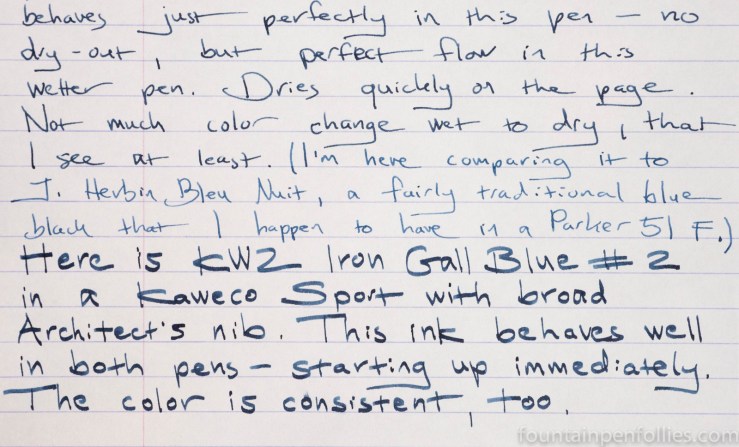 behaves just perfectly in this pen — no
dry-out, but perfect flow in this
wetter pen. Dries quickly on the page.
Not much color change wet to dry, that
I see at least. (I'm here comparing it to
J. Herbin Bleu Nuit, a fairly traditional blue
black that I happen to have in a Parker 51 F.)
Here is KWZ Iron Gall Blue #2
in a Kaweco Sport with broad
Architect's nib. This ink behaves well
in both pens – starting up immediately.
The color is consistent, too.
fountainpenfollies.com